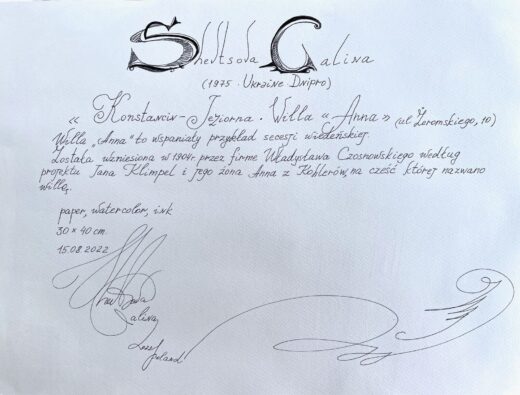 Shevtsova Galina
(1975. Ukraine Dnipro)
« Konstancin-Jeziorna. Willa "Anna» (ul Żeromskiego, 10)
Willa „Anna" to wspaniały przykład secesji wiedeńskiej.
Została wzniesiona w 1904r. przez firmę Władysława Czosnowskiego według
projektu Jana Klimpel i jego żona Anna z Koblerów, na cześć której nazwano
willę.
paper, watercolor, ink
30 × 40 cm.
15.08.2022
Galina
Poland